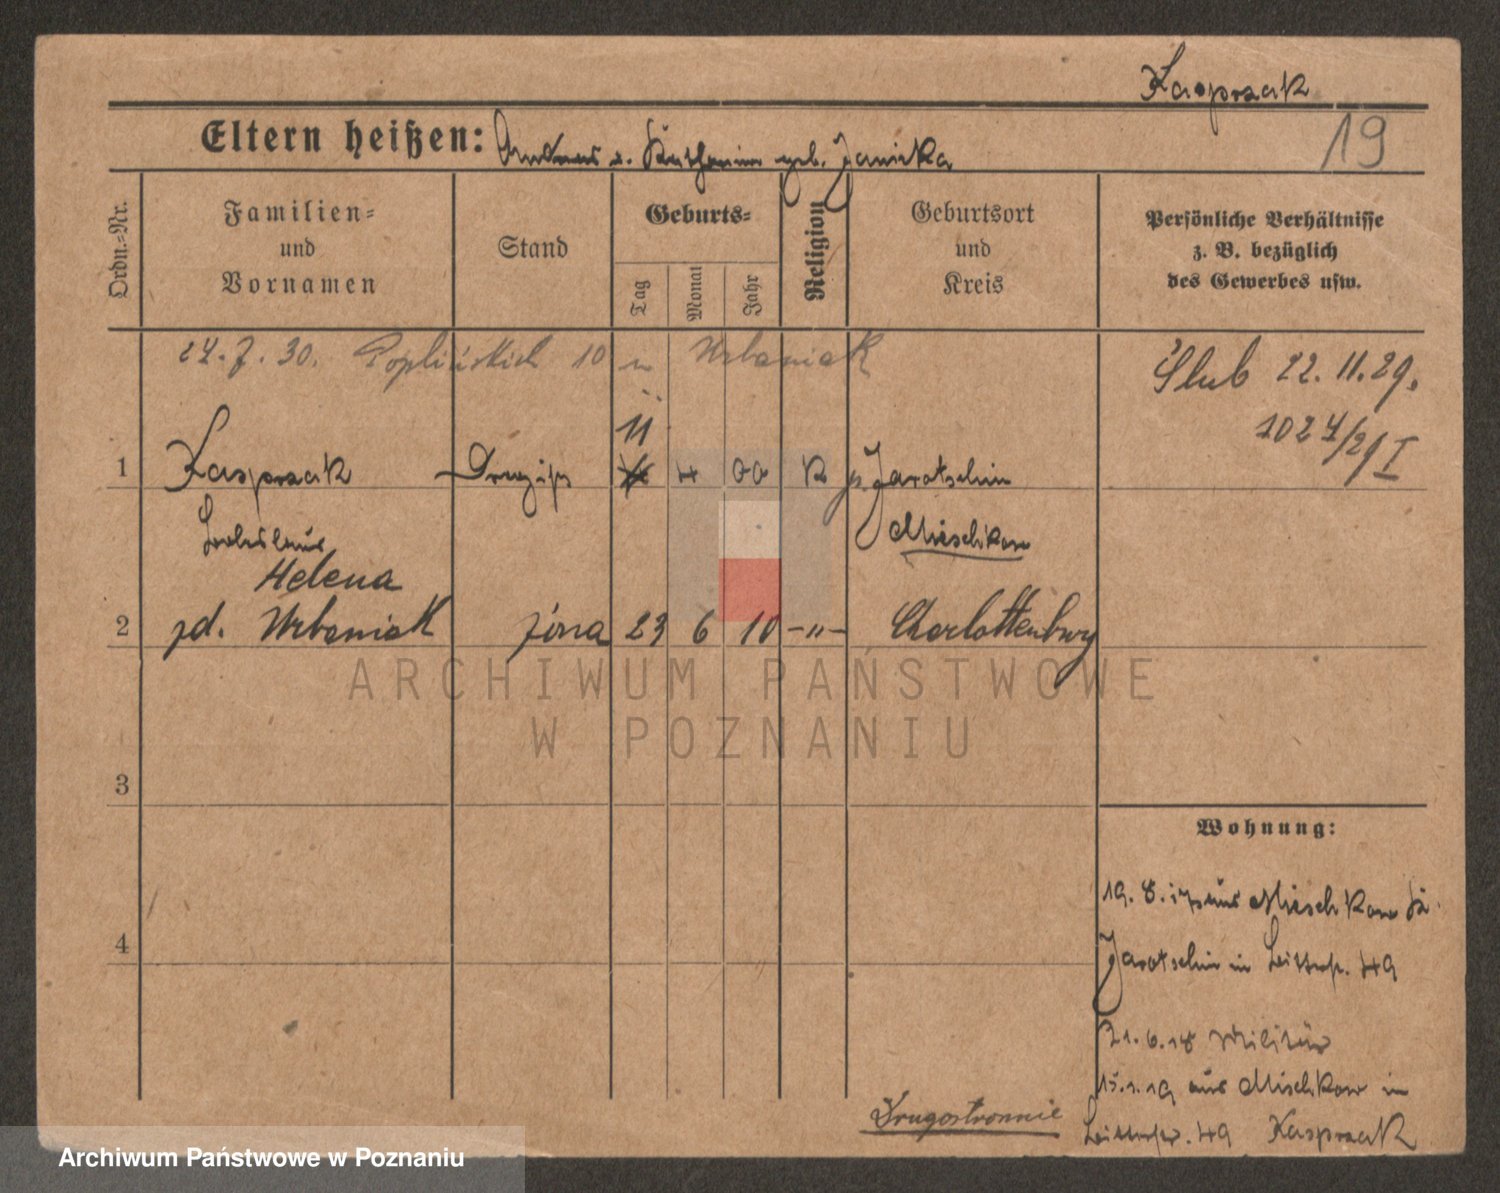 Kasprzak
19
Eltern heißen: Andreas u. Katharina geb. Janicka
Ordn.-Nr.
Familien-
und
Vornamen
Stand
Geburts-
Tag
Monat
Jahr
Religion
Geburtsort
und
Kreis
Persönliche Verhältnisse
z. B. bezüglich
des Gewerbes usw.
24.7.30. Poplińskich 10 u Urbaniak
Ślub 22.11.29.
1024/29 I
1 Kasprzak 11 4 99 K Jarotschin
Ladislaus Mieschkow
Helena
2 zd. Urbaniak żona 23 6 10 -"- Charlottenburg
3
4
Wohnung:
19.8.17 aus Mieschkow Kr.
Jarotschin in 49
21.6.18 Militär
15.1.19 aus Mieschkow in
49 Kasprzak
Drugostronnie
ARCHIWUM PAŃSTWOWE
W POZNANIU
Archiwum Państwowe w Poznaniu